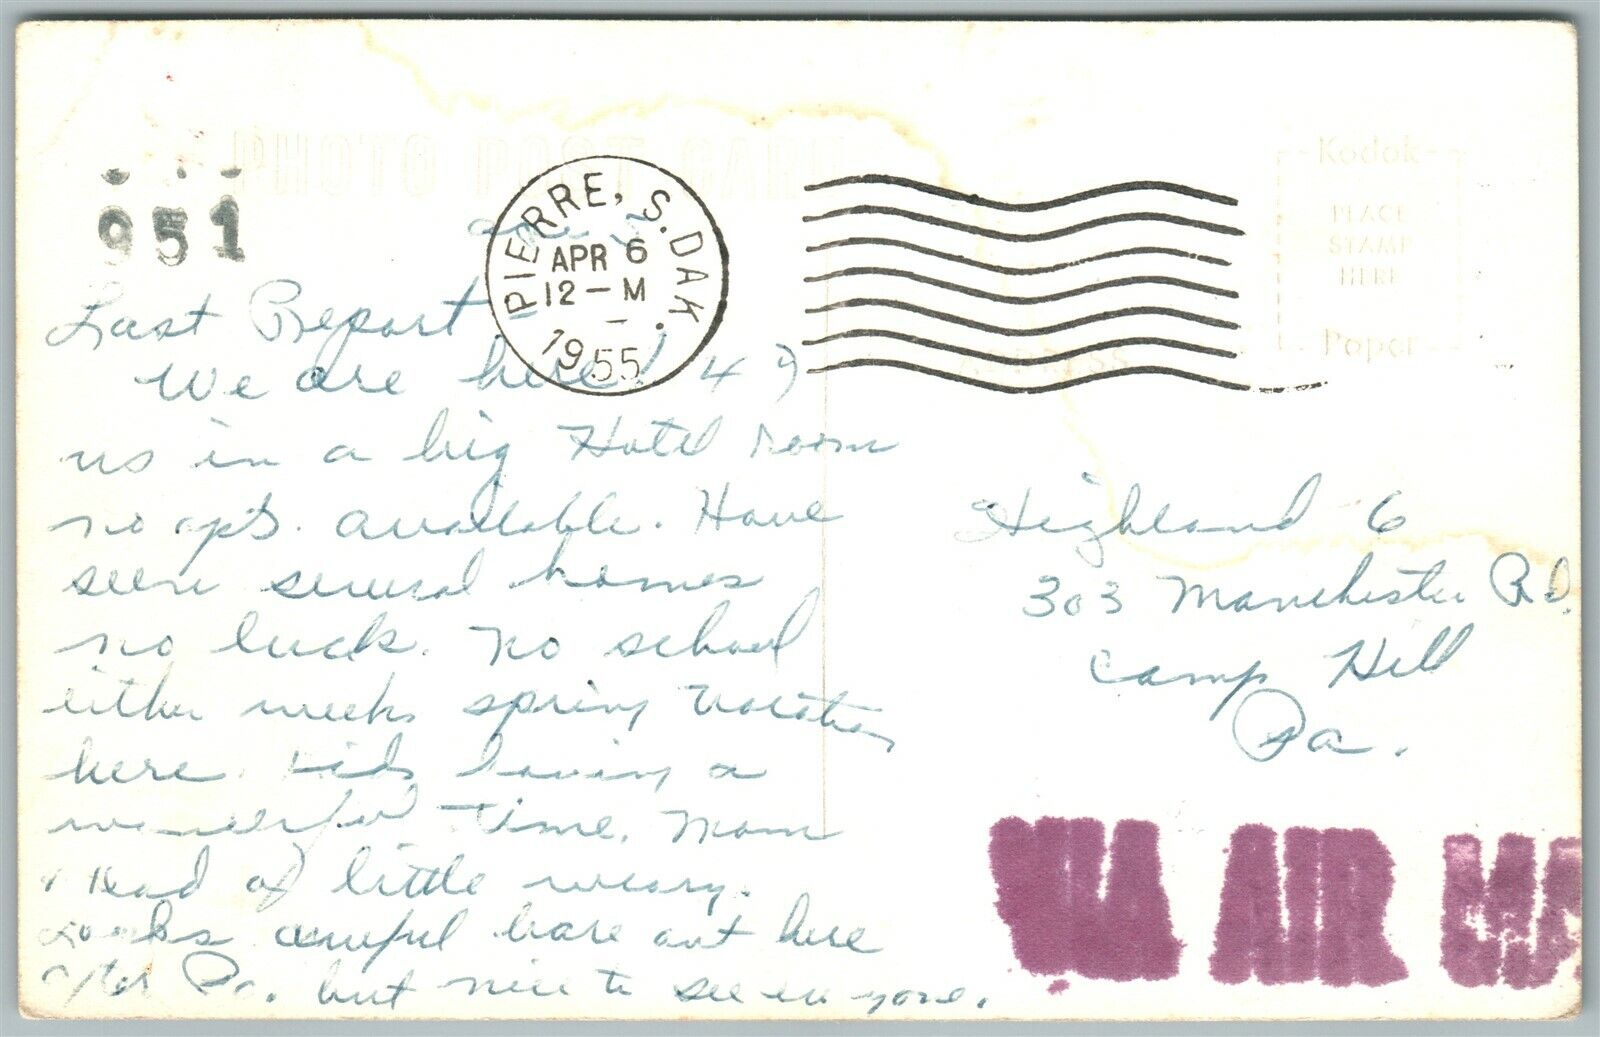 PHOTO POST CARD
951
PIERRE, S. DAK.
APR 6
12 - M
1955
Kodak
PLACE
STAMP
HERE
Paper
ADDRESS
Last Report
We are here! 4 of
us in a big Hotel room
no apts. available. Have
seen several homes
no luck. No school
either weeks spring vacation
here. Kids having a
wonderful time. Mom
& Dad a little weary.
Looks awful bare out here
after Pa. but nice to see everyone.
Highland 6
303 Manchester Rd.
Camp Hill
Pa.
VIA AIR